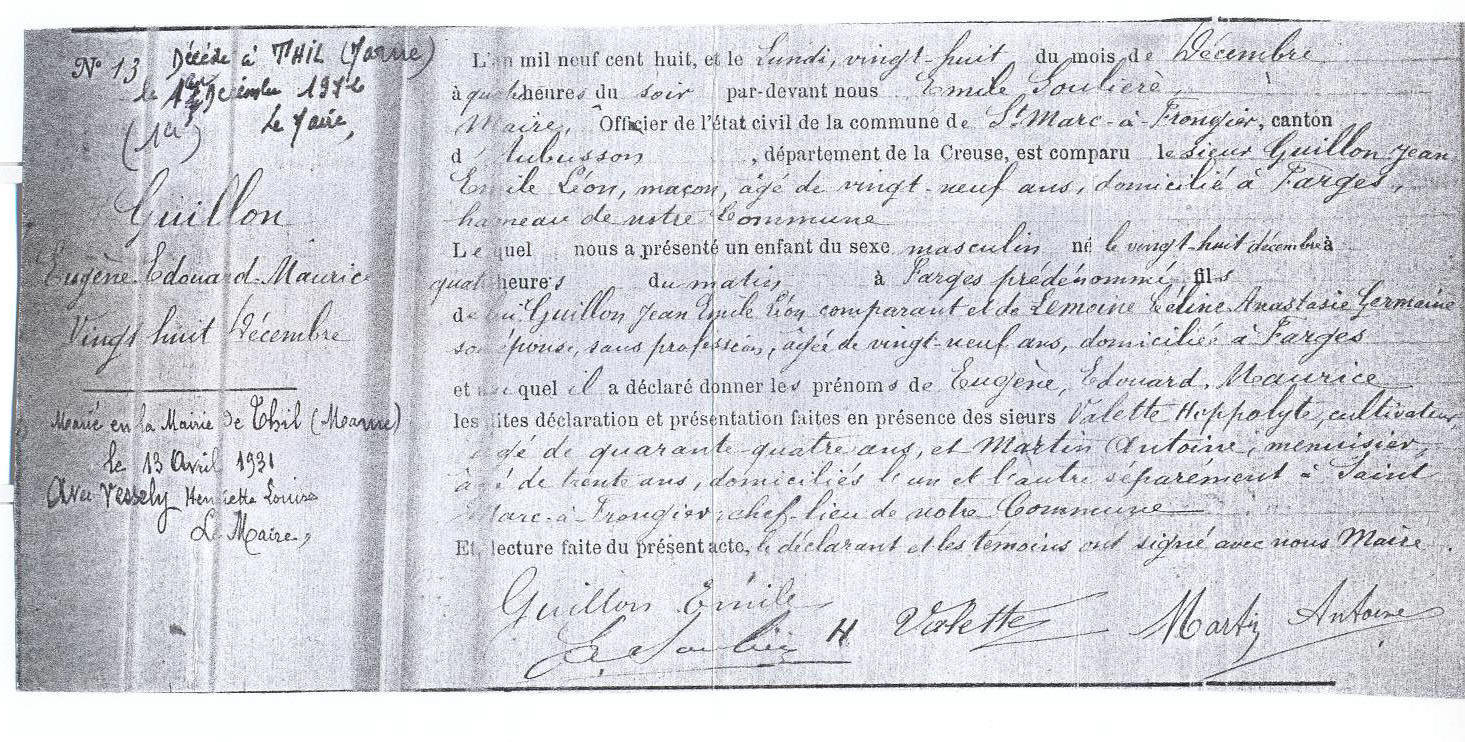 N° 13 Décédé à THIL (Marne)
le 1er Décembre 197
Le Maire,
Guillon
Eugène Edouard Maurice
Vingt huit Décembre
Marié en la Mairie de Thil (Marne)
le 13 Avril 1931
Avec Vessely Henriette Louise
Le Maire,
L'an mil neuf cent huit, et le Lundi, vingt-huit du mois de Décembre
à quatre heures du soir par-devant nous Emile Soulière,
Maire, Officier de l'état civil de la commune de St Marc-à-Frongier, canton
d'Aubusson, département de la Creuse, est comparu le sieur Guillon Jean
Emile Léon, maçon, âgé de vingt-neuf ans, domicilié à Farges,
hameau de notre Commune
Lequel nous a présenté un enfant du sexe masculin né le vingt-huit décembre à
quatre heures du matin à Farges prédénommé, fils
de lui Guillon Jean Emile Léon comparant et de Lemoine Céline Anastasie Germaine
son épouse, sans profession, âgée de vingt-neuf ans, domiciliée à Farges
et auquel il a déclaré donner les prénoms de Eugène, Edouard, Maurice
les dites déclaration et présentation faites en présence des sieurs Valette Hippolyte, cultivateur,
âgé de quarante-quatre ans, et Martin Antoine, menuisier,
âgé de trente ans, domiciliés l'un et l'autre séparément à Saint
Marc-à-Frongier, chef-lieu de notre Commune
Et, lecture faite du présent acte, le déclarant et les témoins ont signé avec nous Maire.
Guillon Emile
H Valette Martin Antoine
E. Soulière